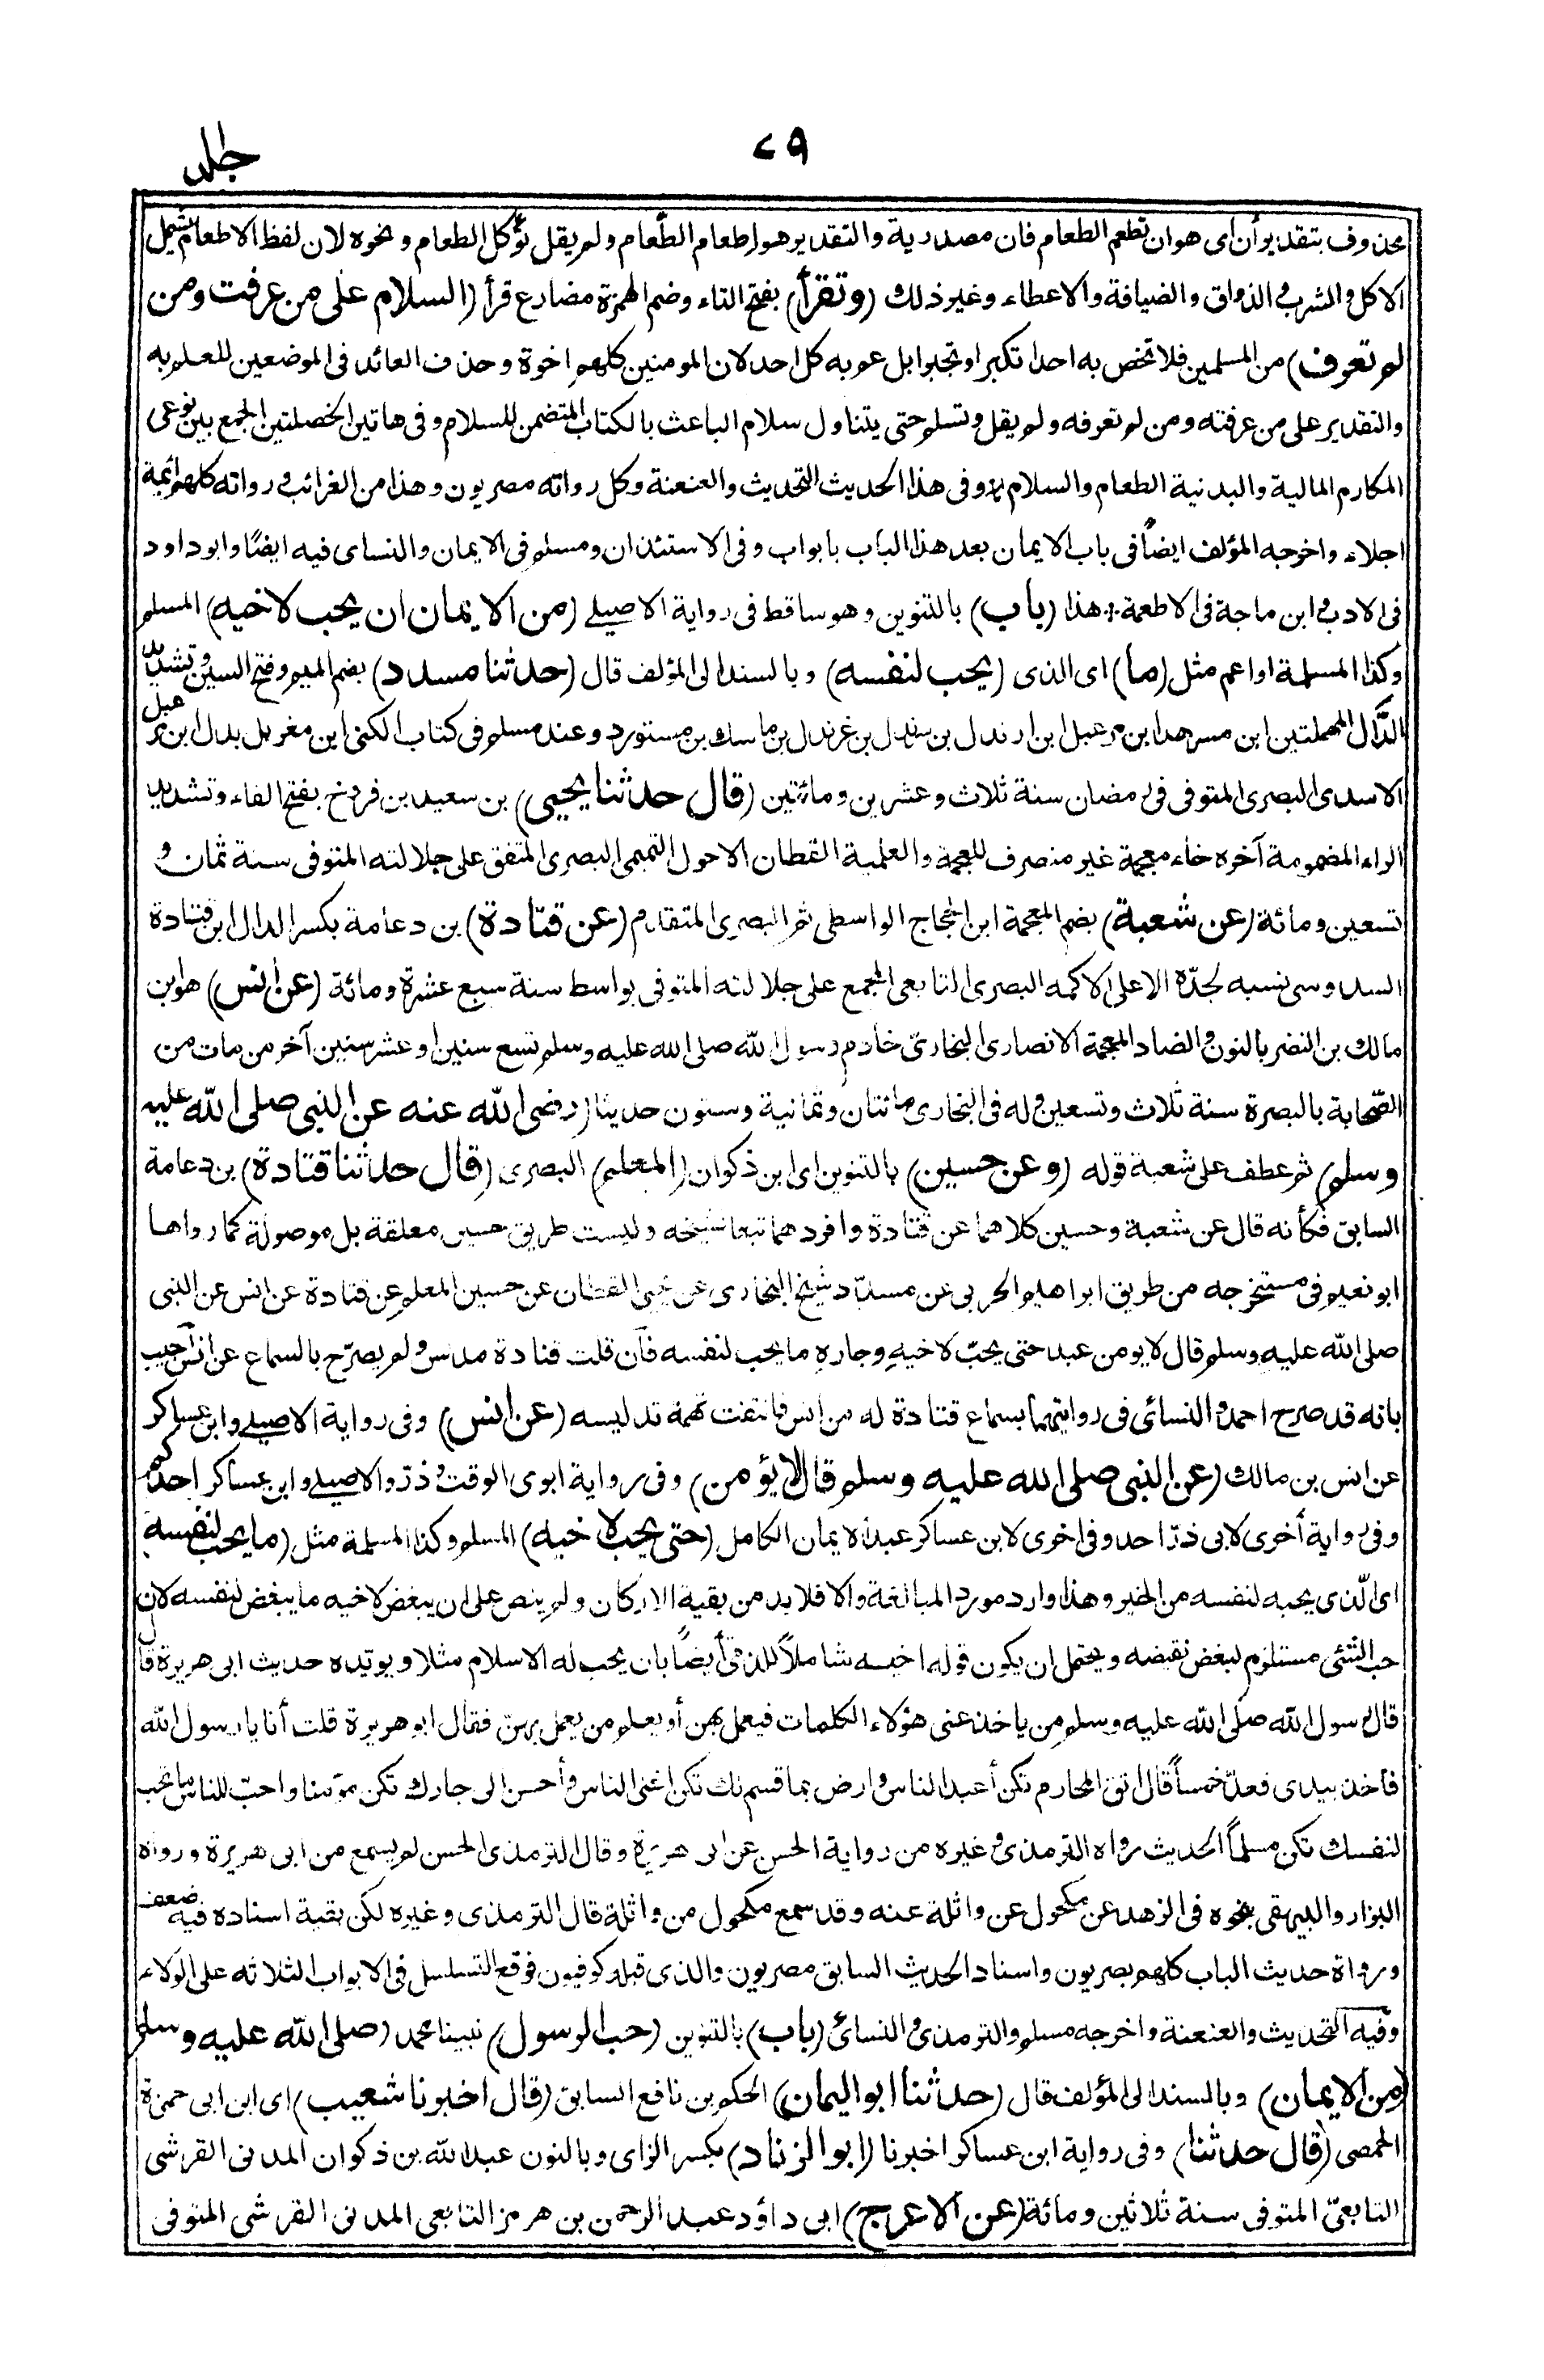 ٧٩
جلد
محذوف بتقدير أن اى هو ان تطعم الطعام فان مصدرية والتقدير هو اطعام الطَّعام ولم يقل تؤكل الطعام ونحوه لان لفظ الاطعام يشمل
الاكل والشرب والذواق والضيافة والاعطاء وغير ذلك (وتقرأ) بفتح التاء وضم الهمزة مضارع قرأ (السلام على من عرفت ومن
لم تعرف) من المسلمين فلا تخص به احدا تكبرا وتجبرا بل عم به كل احد لان المومنين كلهم اخوة وحذف العائد فى الموضعين للعلم به
والتقدير على من عرفته ومن لم تعرفه ولم يقل وتسلم حتى يتناول سلام الباعث بالكتاب المتضمن للسلام وفى هاتين الخصلتين الجمع بين نوعى
المكارم المالية والبدنية الطعام والسلام وفى هذا الحديث التحديث والعنعنة وكل رواته مصريون وهذا من الغرائب ورواته كلهم أئمة
اجلاء واخرجه المؤلف ايضاً فى باب الايمان بعد هذا الباب بابواب وفى الاستئذان ومسلم فى الايمان والنساى فيه ايضًا وابو داود
فى الادب وابن ماجة فى الاطعمة هذا (باب) بالتنوين وهو ساقط فى رواية الاصيلے (من الايمان ان يحب لاخيه) المسلم
وكذا المسلمة او اعم مثل (ما) اى الذى (يحب لنفسه) وبالسند الى المؤلف قال (حدثنا مسدد) بضم الميم وفتح السين وتشديد
الدَّال المهملتين ابن مسرهد ابن مرعبل ابن ارندل بن سرندل بن غرندل بن ماسك بن مستورد وعند مسلم فى كتاب الكنى ابن مغربل بدل ابن مرعبل
الاسدى البصرى المتوفى فى رمضان سنة ثلاث وعشرين ومائتين (قال حدثنا يحيى) بن سعيد بن فروخ بفتح الفاء وتشديد
الراء المضمومة آخره خاء معجمة غير منصرف للعجمة والعلمية القطان الاحول التميمى البصرى المتفق على جلالته المتوفى سنة ثمان و
تسعين ومائة (عن شعبة) بضم المعجمة ابن الحجاج الواسطى ثم البصرى المتقدم (عن قتادة) بن دعامة بكسر الدال ابن قتادة
السدوسى نسبه لجدّه الاعلى الاكمه البصرى التابعى المجمع على جلالته المتوفى بواسط سنة سبع عشرة ومائة (عن انس) هو ابن
مالك بن النضر بالنون والضاد المعجمة الانصارى النجارىّ خادم رسول الله صلى الله عليه وسلم تسع سنين او عشر سنين آخر من مات من
الصَّحابة بالبصرة سنة ثلاث وتسعين وله فى البخارى مائتان وثمانية وستون حديثا (رضى الله عنه عن النبى صلى الله عليه
وسلم) ثم عطف على شعبة قوله (وعن حسين) بالتنوين اى ابن ذكوان (المعلم) البصرى (قال حدثنا قتادة) بن دعامة
السابق فكأنه قال عن شعبة وحسين كلاهما عن قتادة وافردهما تبعا لشيخه وليست طريق حسين معلقة بل موصولة كما رواها
ابو نعيم فى مستخرجه من طريق ابراهيم الحربى عن مسدّد شيخ البخارى عن يحيى القطان عن حسين المعلم عن قتادة عن انس عن النبى
صلى الله عليه وسلم قال لا يومن عبد حتى يحبّ لاخيه وجاره ما يحب لنفسه فان قلت قتادة مدلس ولم يصرّح بالسماع عن انس اجيب
بانه قد صرح احمد والنسائى فى روايتهما بسماع قتادة له من انس فانتفت تهمة تدليسه (عن انس) وفى رواية الاصيلے وابن عساكر
عن انس بن مالك (عن النبى صلى الله عليه وسلم قال لا يؤمن) وفى رواية ابوى الوقت وذرّ والاصيلے وابن عساكر احدكم
وفى رواية أخرى لابى ذرّ احد وفى اخرى لابن عساكر عبد الايمان الكامل (حتى يحب لاخيه) المسلم وكذا المسلمة مثل (ما يحب لنفسه)
اى الّذى يحبه لنفسه من الخير وهذا وارد مورد المبالغة والا فلا بد من بقية الاركان ولم ينص على ان يبغض لاخيه ما يبغض لنفسه لان
حب الشئى مستلزم لبغض نقيضه ويحتمل ان يكون قوله اخيه شاملاً للذمّى أيضاً بان يحب له الاسلام مثلا ويويّده حديث ابى هريرة قال
قال رسول الله صلى الله عليه وسلم من ياخذ عنى هؤلاء الكلمات فيعمل بهن أو يعلم من يعمل بهن فقال ابو هريرة قلت أنا يا رسول الله
فاخذ بيدى فعدّ خمساً قال اتق المحارم تكن أعبد الناس وارض بما قسم لك تكن اغنى الناس وأحسن الى جارك تكن مؤمنا واحبّ للناس ما تحب
لنفسك تكن مسلماً الحديث رواه الترمذى وغيره من رواية الحسن عن ابى هريرة وقال الترمذى الحسن لم يسمع من ابى هريرة ورواه
البزار والبيهقى بنحوه فى الزهد عن مكحول عن واثلة عنه وقد سمع مكحول من واثلة قال الترمذى وغيره لكن بقية اسناده فيه ضعف
ورواة حديث الباب كلهم بصريون واسناد الحديث السابق مصريون والذى قبله كوفيون فوقع التسلسل فى الابواب الثلاثة على الولاء
وفيه التحديث والعنعنة واخرجه مسلم والترمذى والنسائى (باب) بالتنوين (حب الرسول) نبينا محمد (صلى الله عليه وسلم
(من الايمان) وبالسند الى المؤلف قال (حدثنا ابو اليمان) الحكم بن نافع السابق (قال اخبرنا شعيب) اى ابن ابى حمزة
الحمصى (قال حدثنا) وفى رواية ابن عساكر اخبرنا (ابو الزناد) بكسر الزاى وبالنون عبد الله بن ذكوان المدنى القرشى
التابعىّ المتوفى سنة ثلاثين ومائة (عن الاعرج) ابى داؤد عبد الرحمن بن هرمز التابعى المدنى القرشى المتوفى